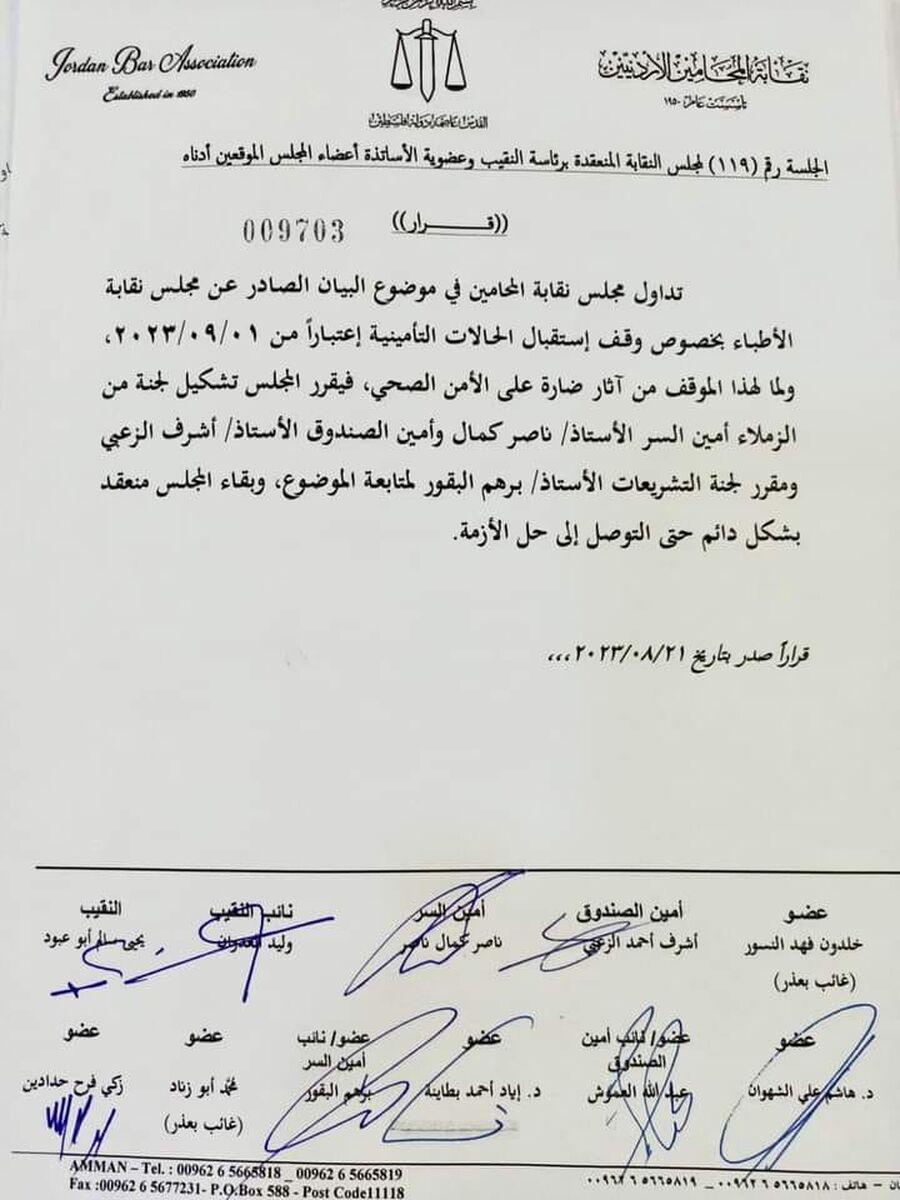 Jordan Bar Association
Established in 1950
نقابة المحامين الأردنيين
تأسست عام ١٩٥٠
القدس عاصمة دولة فلسطين
الجلسة رقم (١١٩) لمجلس النقابة المنعقدة برئاسة النقيب وعضوية الأساتذة أعضاء المجلس الموقعين أدناه
((قـــــرار))
009703
تداول مجلس نقابة المحامين في موضوع البيان الصادر عن مجلس نقابة
الأطباء بخصوص وقف إستقبال الحالات التأمينية إعتباراً من ٢٠٢٣/٠٩/٠١،
ولما لهذا الموقف من آثار ضارة على الأمن الصحي، فيقرر المجلس تشكيل لجنة من
الزملاء أمين السر الأستاذ/ ناصر كمال وأمين الصندوق الأستاذ/ أشرف الزعبي
ومقرر لجنة التشريعات الأستاذ/ برهم البقور لمتابعة الموضوع، وبقاء المجلس منعقد
بشكل دائم حتى التوصل إلى حل الأزمة.
قراراً صدر بتاريخ ٢٠٢٣/٠٨/٢١،،،
عضو أمين الصندوق أمين السر نائب النقيب النقيب
خلدون فهد النسور أشرف أحمد الزعبي ناصر كمال ناصر وليد العدوان يحيى سالم أبو عبود
(غائب بعذر)
عضو عضو/ نائب أمين عضو عضو/ نائب عضو عضو
الصندوق أمين السر
د. هاشم علي الشهوان عبد الله العموش د. إياد أحمد بطاينة برهم البقور محمد أبو زناد زكي فرح حدادين
(غائب بعذر)
AMMAN – Tel. : 00962 6 5665818 _ 00962 6 5665819
Fax :00962 6 5677231- P.O.Box 588 - Post Code11118
هاتف : ٠٠٩٦٢ ٦ ٥٦٦٥٨١٨ _ ٠٠٩٦٢ ٦ ٥٦٦٥٨١٩